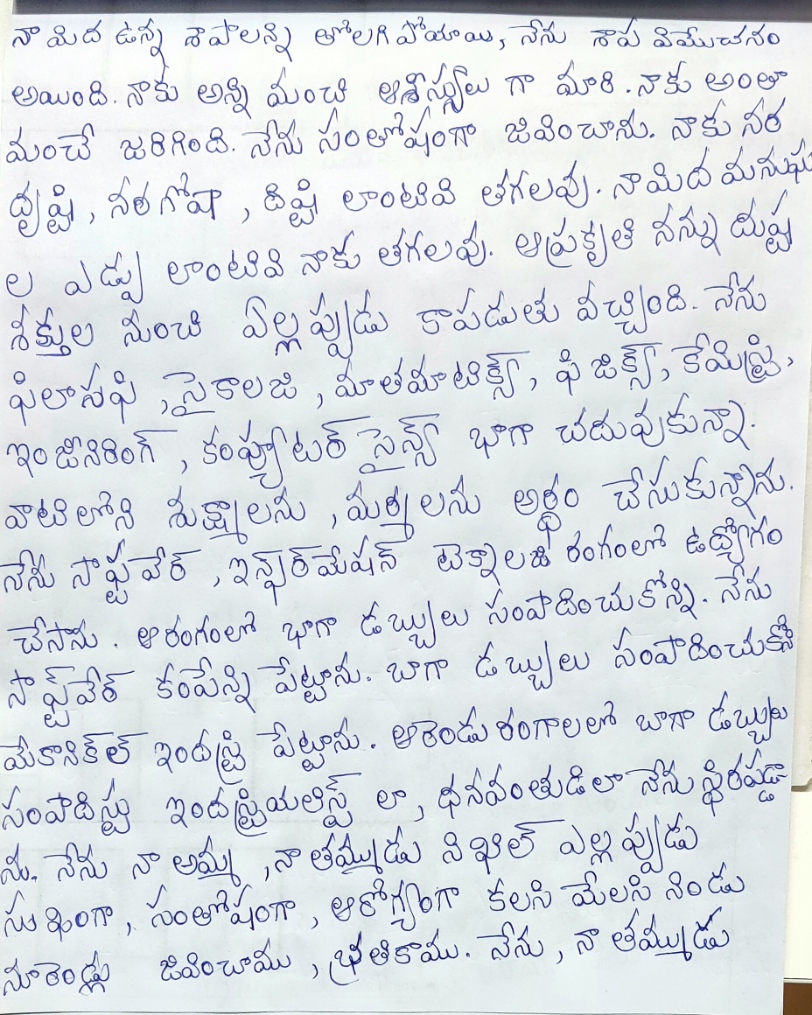 నా మిద ఉన్న శాపాలన్ని తోలగి పోయాయి, నేను శాప విమోచనం
అయింది. నాకు అన్ని మంచి ఆశీస్సులు గా మారి. నాకు అంతా
మంచే జరిగింది. నేను సంతోషంగా జివించాను. నాకు నర
దృష్టి, నరగోషా, దిష్టి లాంటివి తగలవు. నామిద మనుషు
ల ఎడ్పు లాంటివి నాకు తగలవు. ఆప్రకృతి నన్ను దుష్ట
శక్తుల నుంచి ఏల్లప్పుడు కాపడుతు వచ్చింది. నేను
ఫిలాసఫి, సైకాలజి, మాతమాటిక్స్, ఫిజిక్స్, కేమిస్ట్రి,
ఇంజనిరింగ్, కంప్యూటర్ సైన్స్ భాగా చదువుకున్నా.
వాటిలోని శుక్ష్మాలను, మర్మాలను అర్థం చేసుకున్నాను.
నేను సాఫ్ట్వేర్, ఇన్ఫర్మేషన్ టెక్నాలజి రంగంలో ఉద్యోగం
చేసాను. ఆరంగంలో భాగా డబ్బులు సంపాదించుకోన్ని. నేను
సాఫ్ట్‌వేర్ కంపేన్ని పేట్టాను. బాగా డబ్బులు సంపాదించుకోని
మేకానికల్ ఇండస్ట్రి పేట్టాను. ఆరెండు రంగాలలో బాగా డబ్బులు
సంపాదిస్తు ఇండస్ట్రియలిస్ట్ లా, ధనవంతుడిలా నేను స్థిరపడ్డా
ను. నేను నా అమ్మ, నా తమ్ముడు నిఖిల్ ఎల్లప్పుడు
సుఖంగా, సంతోషంగా, ఆరోగ్యంగా కలసి మేలసి నిండు
నూరెండ్లు జివించాము, భ్రతికాము. నేను, నా తమ్ముడు